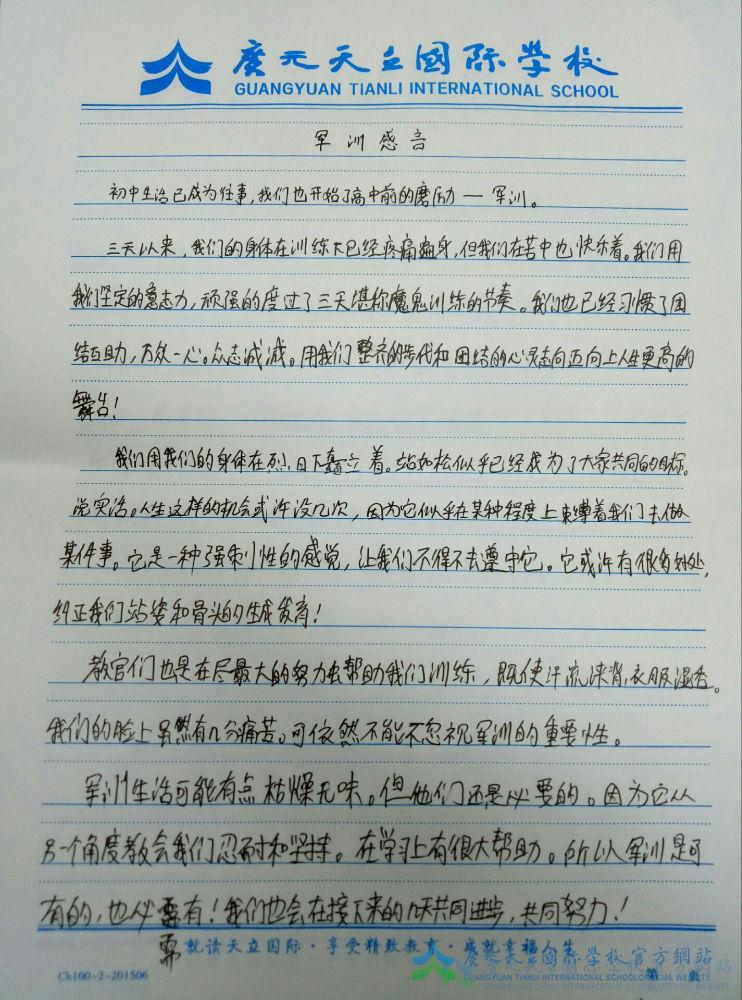 廣元天立國际學校
GUANGYUAN TIANLI INTERNATIONAL SCHOOL
军训感言
初中生活已成为往事,我们也开始了高中前的磨历力——军训。
三天以来,我们的身体在训练下已经疼痛遍身,但我们在苦中也快乐着。我们用
我们坚定的意志力,顽强的度过了三天堪称魔鬼训练的节奏。我们也已经习惯了团
结互助,万众一心。众志成城。用我们整齐的步伐和团结的心灵志向迈向上人生更高的
舞台!
我们用我们的身体在烈日下矗立着。站如松似乎已经成为了大家共同的目标。
说实活。人生这样的机会或许没几次,因为它似乎在某种程度上束缚着我们去做
某件事。它是一种强制性的感觉,让我们不得不去遵守它。它或许有很多好处,
纠正我们站姿和骨头的生成发育!
教官们也是在尽最大的努力去帮助我们训练,既使汗流浃背,衣服湿透。
我们的脸上虽然有几分痛苦。可依然不能不忽视军训的重要性。
军训生活可能有点枯燥无味。但他们还是必要的。因为它从
另一个角度教会我们忍耐和坚持。在学习上有很大帮助。所以军训是可
有的,也必需有!我们也会在接下来的几天共同进步,共同努力!
需
就读天立国际·享受精致教育·成就幸福人生
Ch100-2-201506
第 页
廣元天立國际學校官方網站
GUANGYUAN TIANLI INTERNATIONAL SCHOOLOFFICIAL WEBSITE